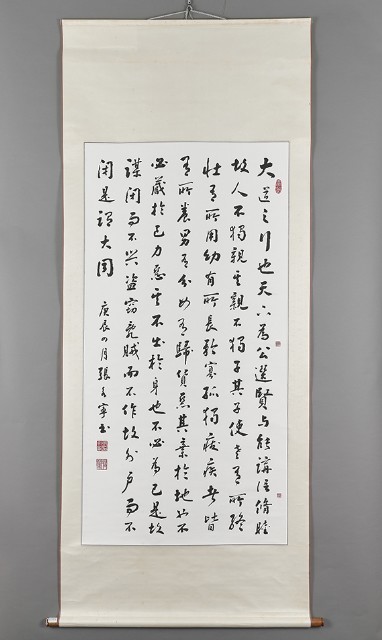 大道之行也天下為公選賢与能講信脩睦
故人不獨親其親不獨子其子使老有所終
壯有所用幼有所長矜寡孤獨廢疾者皆
有所養男有分女有歸貨惡其棄於地也不
必藏於己力惡其不出於身也不必為己是故
謀閉而不興盜竊亂賊而不作故外戶而不
閉是謂大同
庚辰四月張寧書